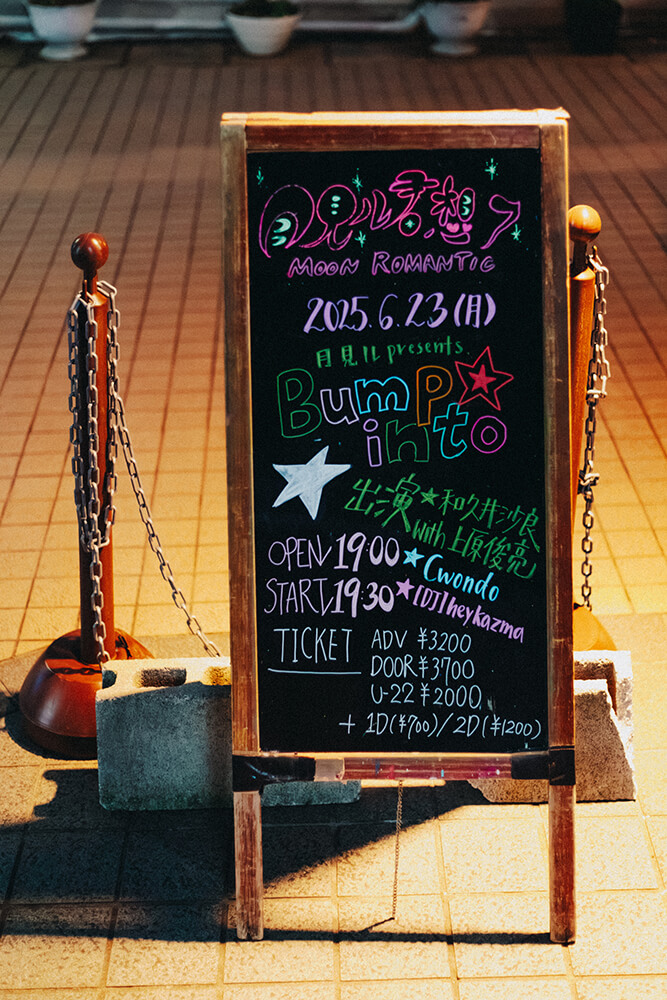 月見ル君想フ
MOON ROMANTIC
2025.6.23(月)
月見ル presents.
Bump
into
出演★和久井沙良
with 上原俊亮
OPEN 19:00 ★Cwondo
START 19:30 ★[DJ]heykazma
TICKET ADV ¥3200
DOOR ¥3700
U-22 ¥2000
+ 1D(¥700)/2D(¥1200)